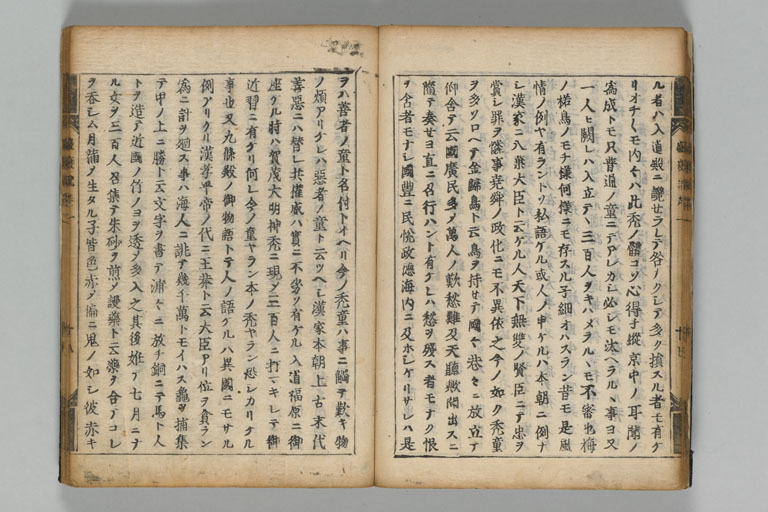 ル者ハ入道殿ニ讒セラレテ咎ノクレテ多ク損スル者モ有ケ
リオチくモ内々ハ此禿ノ髑コソ心得子縦京中ノ耳聞ノ
為成トモ只普通ノ童ニテアレカシ必シモ汰ヘラルヽ事ヨ又
一人モ闕レハ入立テヽ三百人ヲキハメラルヽモ不審也梅
ノ楉鳥ノモチ様何様ニモ存スル子細オハスラン昔モ是風
情ノ例ヤ有ラントソ私語ケル或人ノ申ケルハ本朝ニ例ナ
シ漢家ニ八葉大臣ト云ケル人天下無雙ノ賢臣ニテ忠ヲ
賞シ罪ヲ
事堯舜ノ政化ニモ不異依之今ノ如ク禿童
ヲ多ソロヘテ金歸鳥ト云鳥ヲ持セテ國々巷々ニ放立テ
仰含テ云國廣民多シ萬人ノ歎愁難及天聽
聞出スニ
隨テ奏セヨ直ニ召行ハント有ケレハ愁ヲ殘ス者モナク恨
ヲ含者モナシ國豐ニ民悅政德海内ニ及ホシケリサレハ是
ヲハ善者ノ童ト名付トイヘリ今ノ禿童ハ事ニ觸テ歎キ物
ノ煩アリケレハ惡者ノ童ト云ツヘシ漢家本朝上古末代
善惡ニハ替レ共權威ハ實ニ不劣ソ有ケル入道福原ニ御
座ケル時ハ賀茂大明神禿ニ現シ三百人ニ打
キレテ御
近習ニ有ケリ何レ今ノ童ヤラン本ノ禿ヤラン
レカリケル
事也又九條殿ノ御物語トテ人ノ語ケルハ異國ニモサル
例アリケリ漢孝平帝ノ代ニ王莽ト云大臣アリ位ヲ貪ラン
為ニ計ヲ廻ス事ハ海人ニ誂テ幾千萬トモイハス龜ヲ捕集
テ甲ノ上ニ勝ト云文字ヲ書テ浦々ニ放チ銅ニテ馬ト人
トヲ造テ近國ノ竹ノヨヲ透シ多入之其後姙テ七月ニナ
ル女ヲ三百人召集テ朱砂ヲ煎シ謾藥ト云藥ヲ合テコレ
ヲ呑シム月滿ノ生タル子皆色赤シ偏ニ鬼ノ如シ彼赤キ